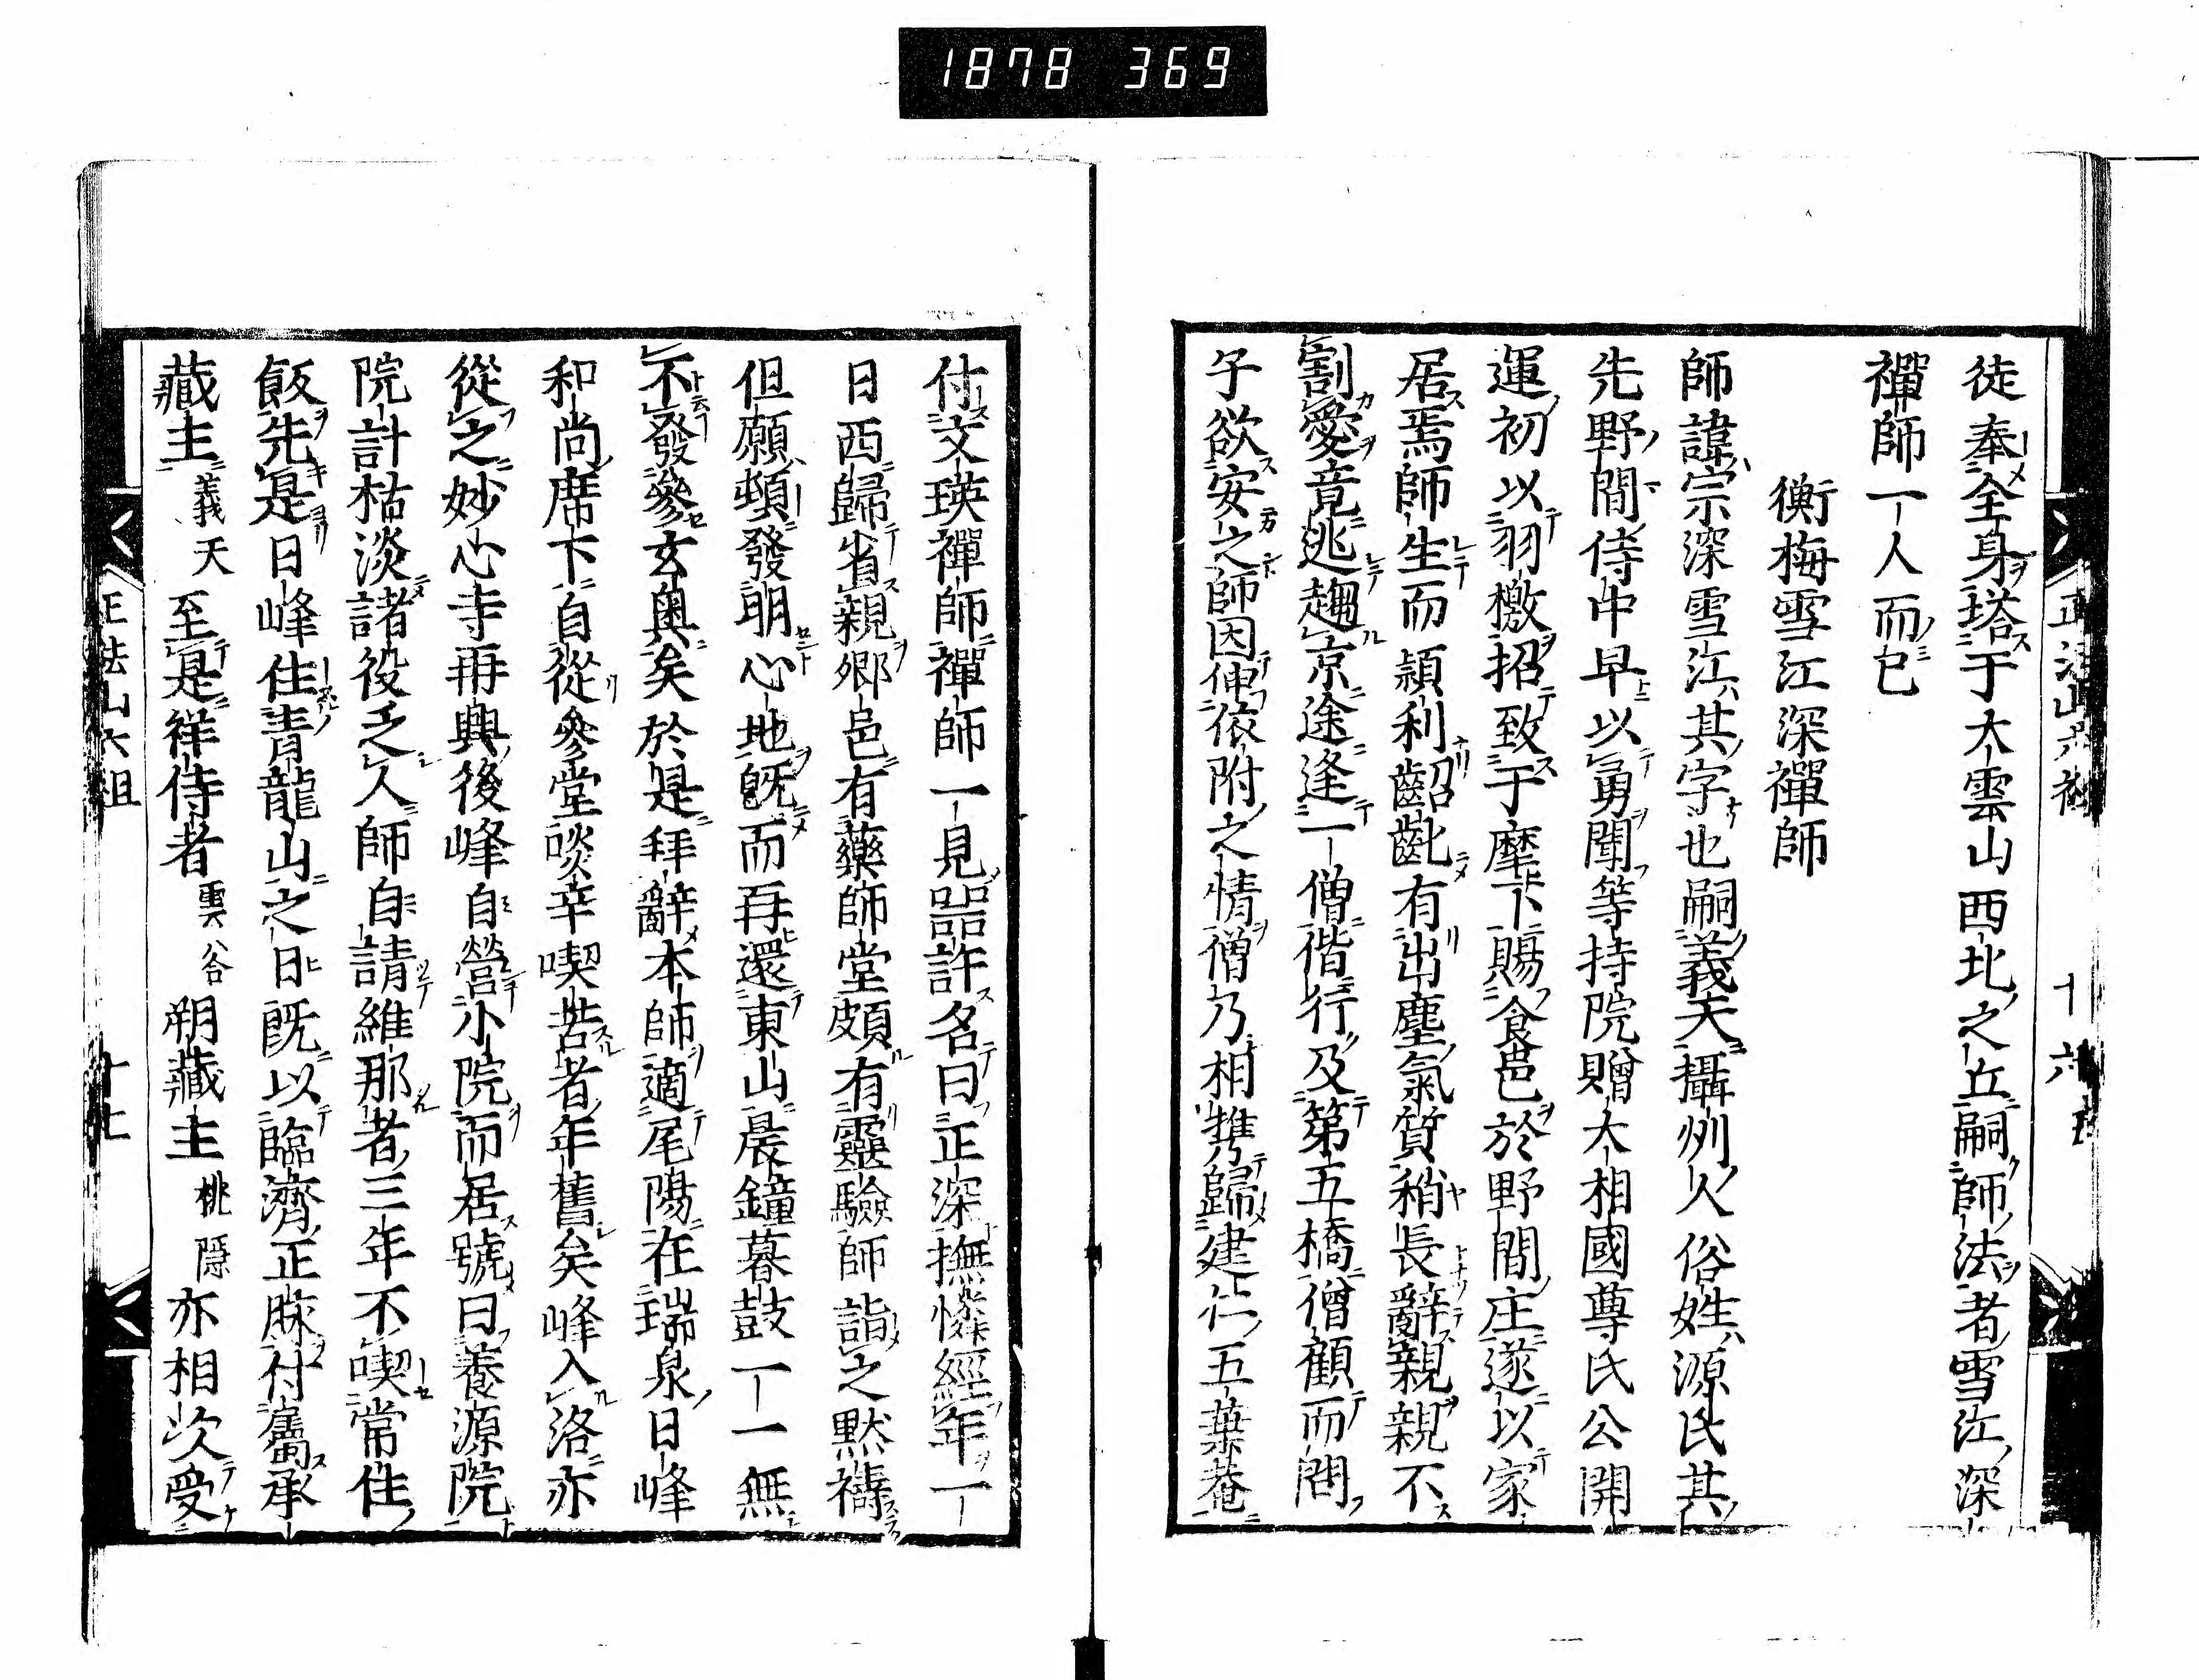 1878 369
徒奉全身塔于大雲山西北之丘嗣師法者雪江深
禪師一人而已
衡梅雪江深禪師
師諱宗深雪江其字也嗣義天攝州人俗姓源氏其
先野間侍中早以勇聞等持院贈大相國尊氏公開
運初以羽檄招致于麾下賜食邑於野間庄遂以家
居焉師生而穎利齠齔有出塵氣質稍長辭親親不
割愛竟逃趨京途逢一僧偕行及第五橋僧顧而問
子欲安之師因伸依附之情僧乃相携歸建仁五葉菴
付文瑛禪師禪師一見噐許名曰正深撫憐經年一
日西歸省親鄉邑有藥師堂頗有靈驗師詣之默禱
但願頓發明心地既而再還東山晨鐘暮鼓一一無
不發參玄奥矣於是拜辭本師適尾陽在瑞泉日峰
和尚席下自從參堂啖辛喫苦者年舊矣峰入洛亦
從之妙心寺再興後峰自營小院而居號曰養源院
院計枯淡諸役乏人師自請維那者三年不喫常住
飯先是日峰住青龍山之日既以臨濟正脉付屬承
藏主義天至是祥侍者雲谷朔藏主桃隱亦相次受
正法山六祖 十六
正法山六祖 十七